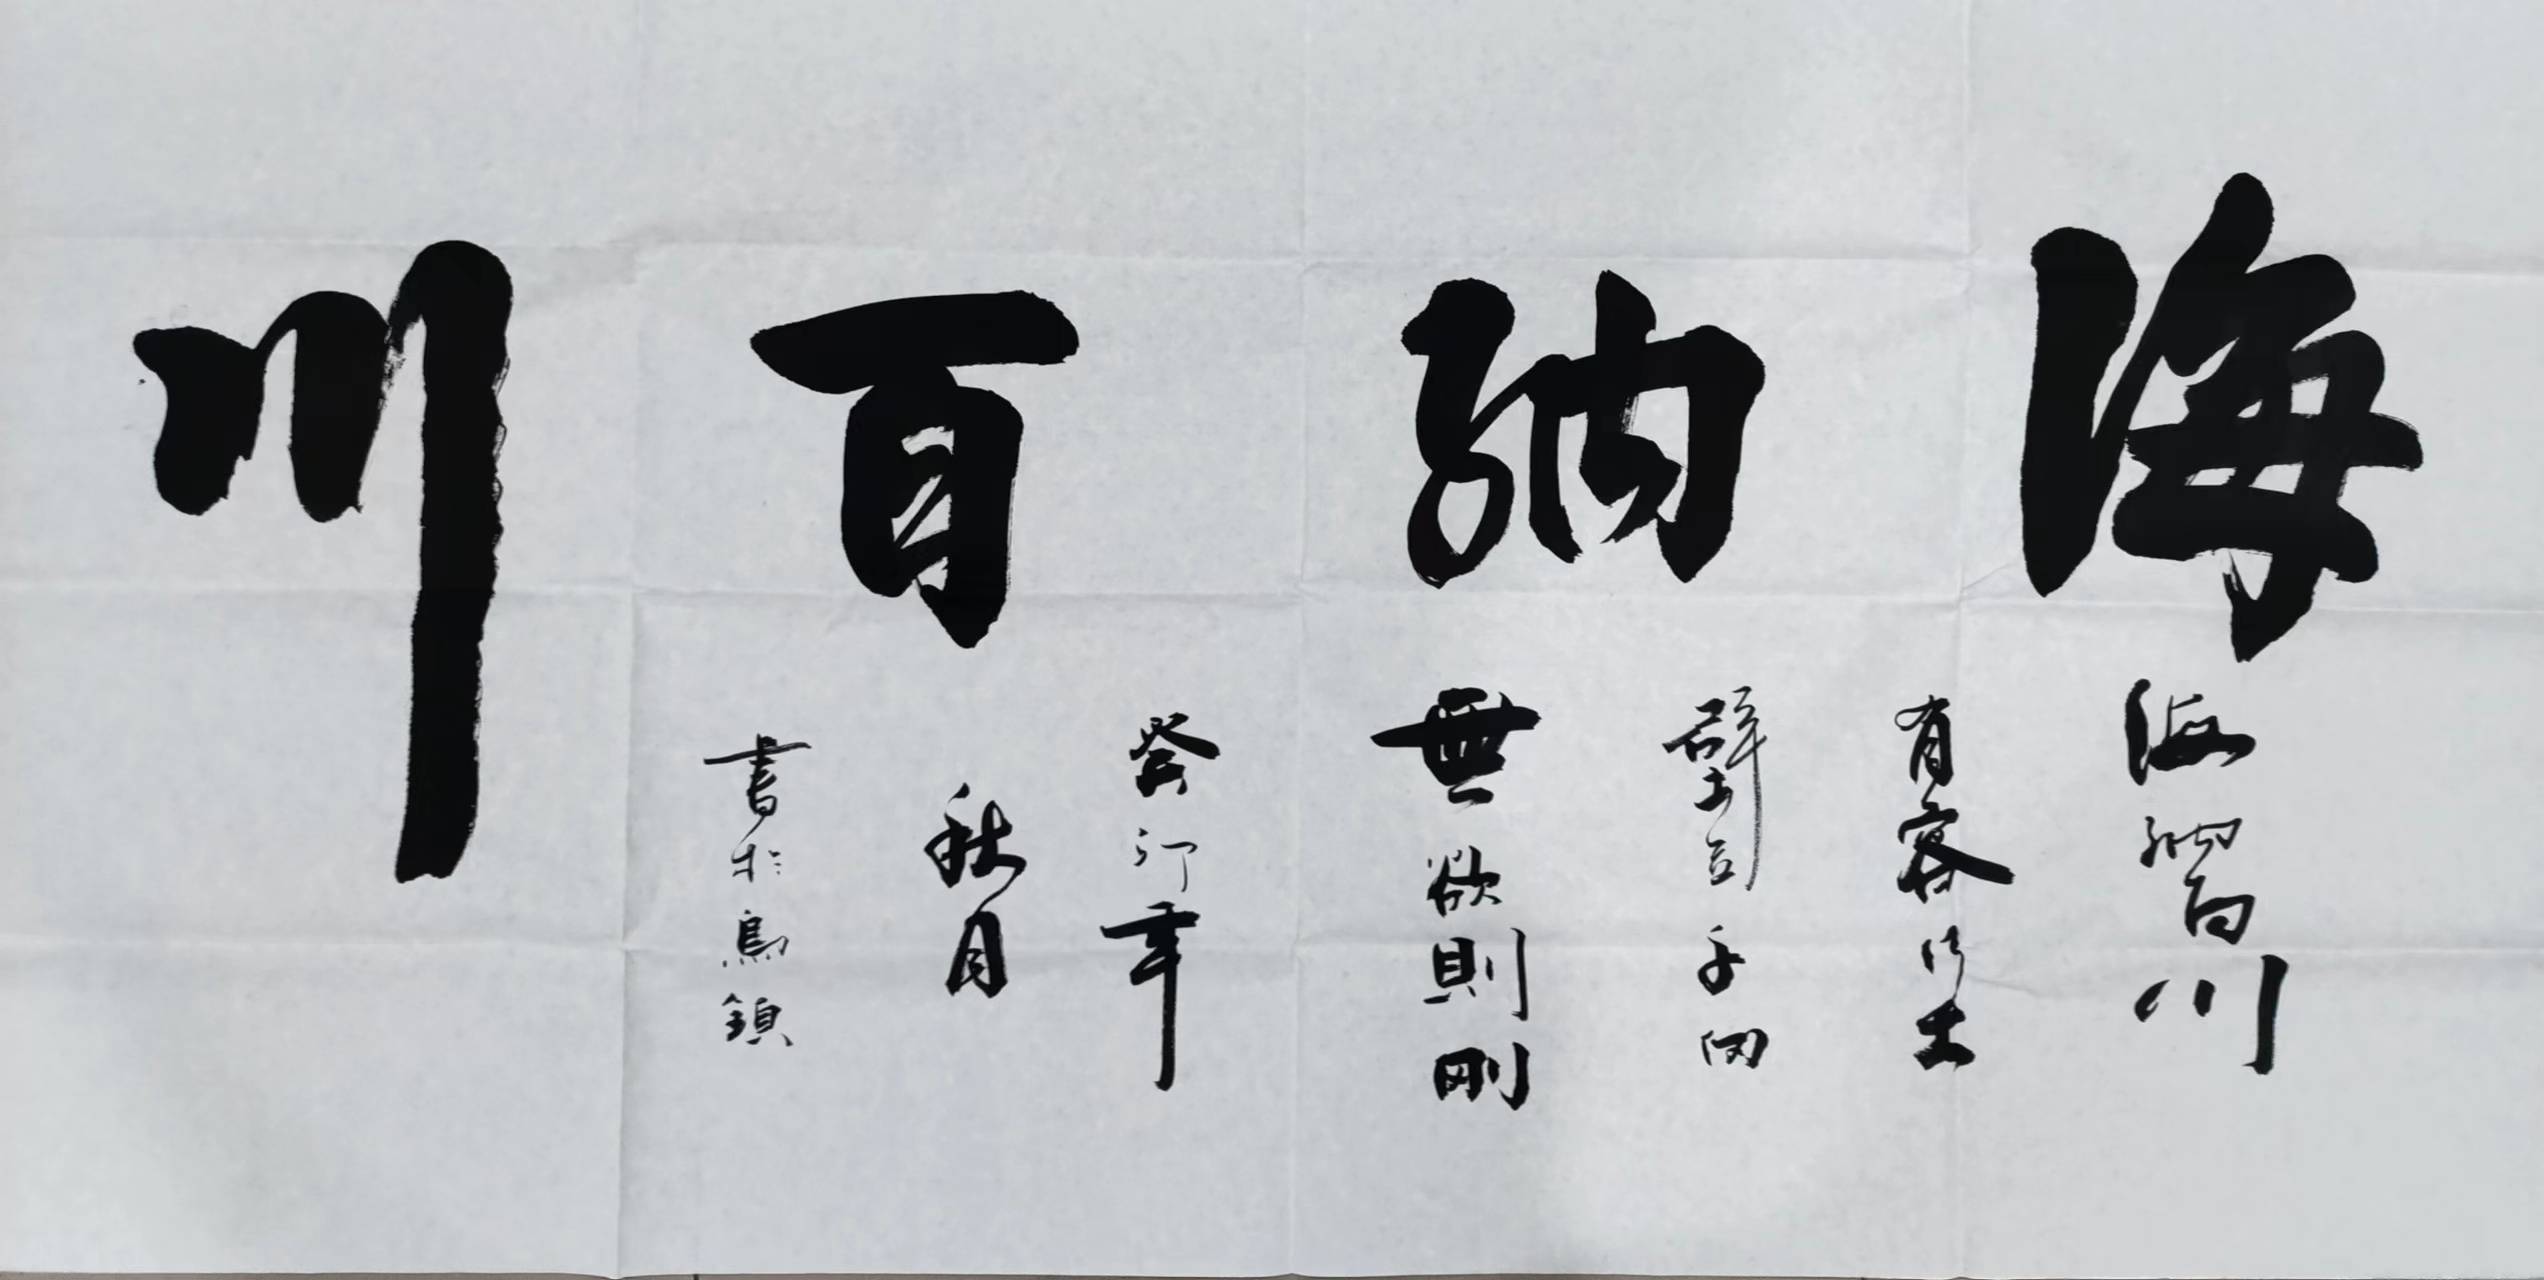 海納百川
海納百川
有容乃大
壁立千仞
無欲則剛
癸卯年
秋月
書於烏鎮